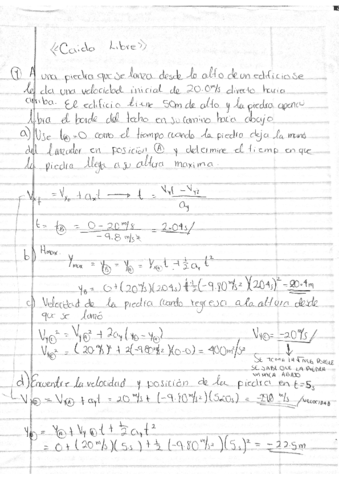 <<Caida Libre>>
① A una piedra que se lanza desde lo alto de un edificio se
le da una velocidad inicial de 20.0 m/s directo hacia
arriba. El edificio tiene 50m de alto y la piedra apenas
libra el borde del techo en su camino hacia abajo.
a) Use tⒶ=0 como el tiempo cuando la piedra deja la mano
del lanzador en posición Ⓐ y determine el tiempo en que
la piedra llega a su altura maxima
t = tⒷ = 0 - 20 m/s / -9.8 m/s² = 2.04 s
b) Hmax
Ymax = yⒷ = yⒶ + VyⒶ t + ½ ay t²
yⒷ = 0 + (20 m/s)(2.04s) + ½(-9.80 m/s²)(2.04s)² = 20.4m
c) Velocidad de la piedra cuando regresa a la altura desde
que se lanzó
= -20 m/s
d) Encuentre la velocidad y posición de la piedra en t=5s
= VyⒶ + ay t = 20 m/s + (-9.80 m/s²)(5.00s) = m/s velocidad
= yⒶ + VyⒶ t + ½ ay t²
= 0 + (20 m/s)(5s) + ½ (-9.80 m/s²)(5s)² = -22.5m